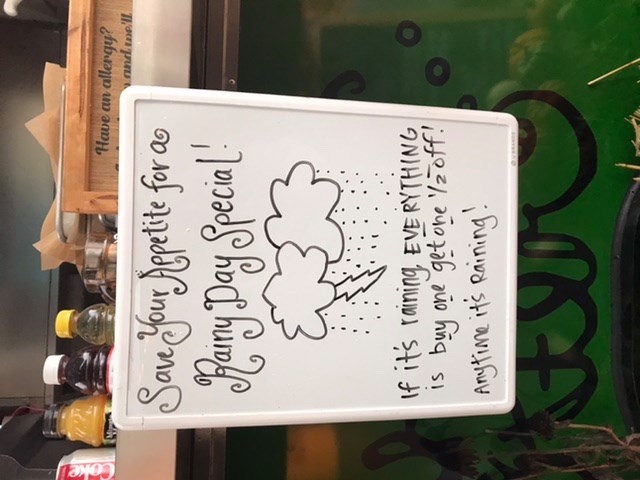 Save Your Appetite for a
Rainy Day Special!
If it's raining EVERYTHING
is buy one get one 1/2 off!
Anytime it's Raining!
Have an allergy?
and we'll
Coke